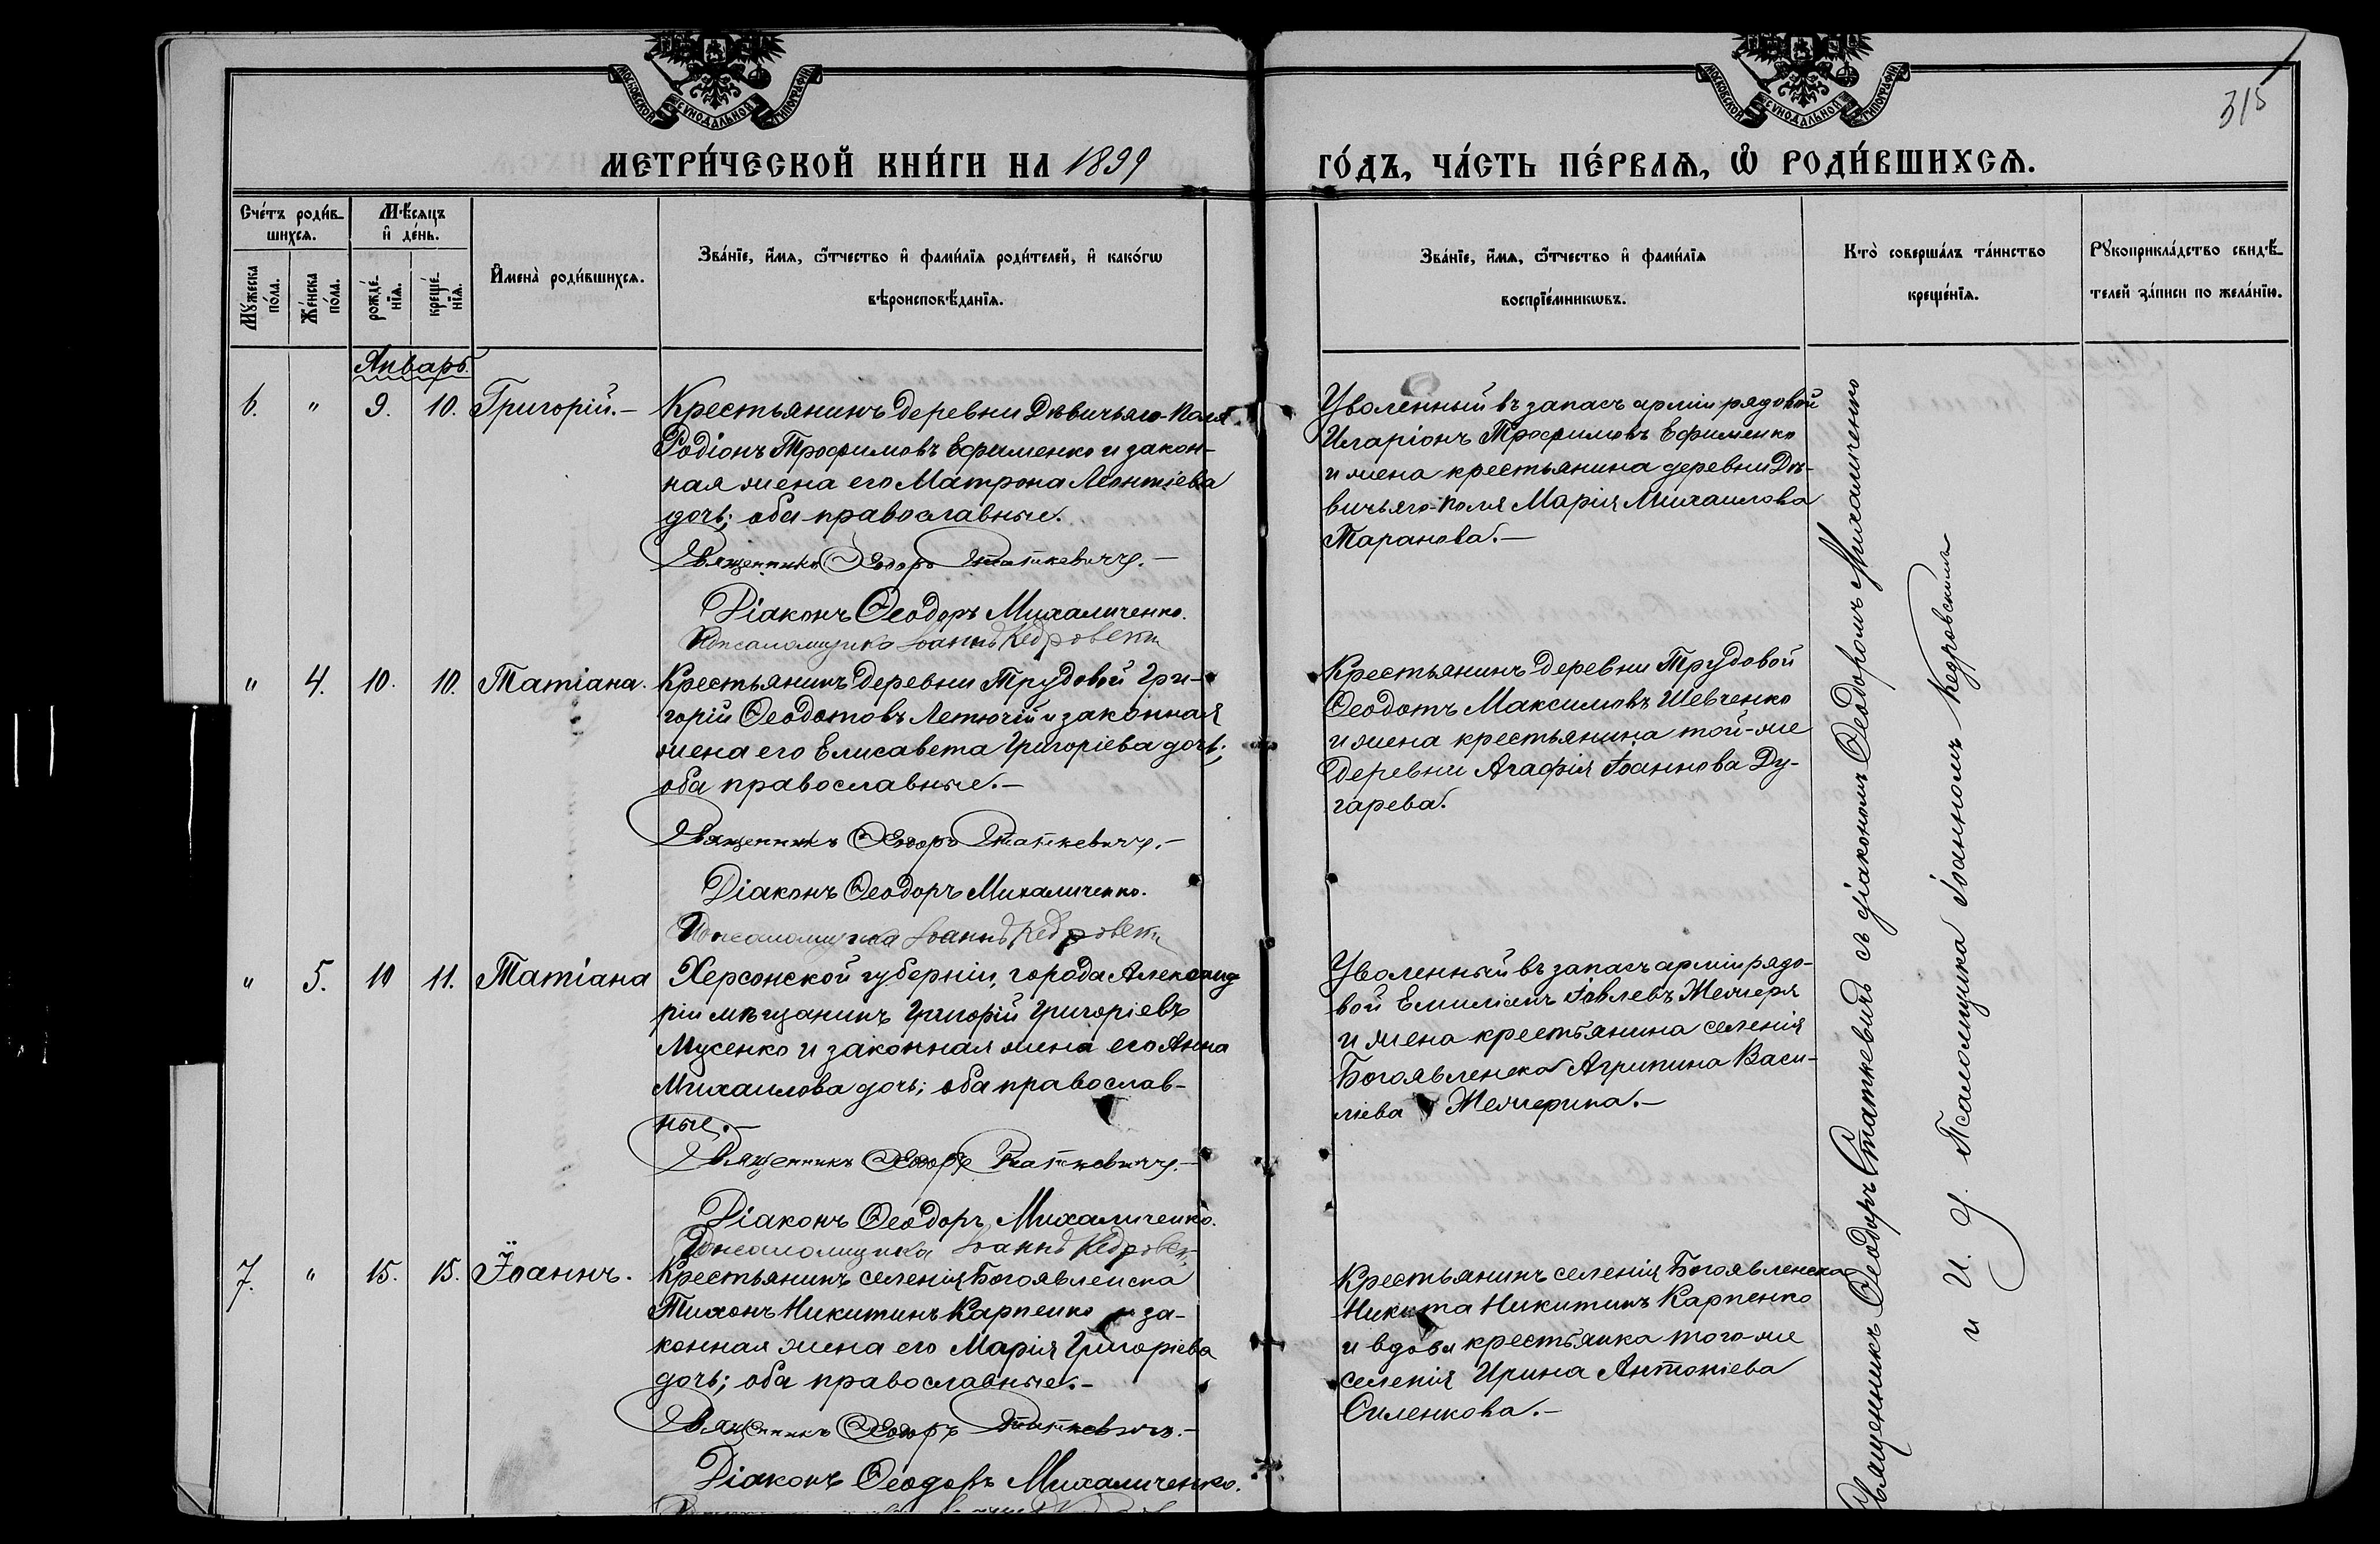 МОСКОВСКОЙ СУНОДАЛЬНОЙ ТИПОГРАФІИ
МОСКОВСКОЙ СУНОДАЛЬНОЙ ТИПОГРАФІИ
315
МЕТРИ́ЧЕСКОЙ КНИ́ГИ НА 1899
ГО́ДЪ, ЧА́СТЬ ПЕ́РВАѦ, Ѡ҆ РОДИ́ВШИХСѦ.
Сче́тъ роди́в-
шихсѧ.
Мѣ́сѧцъ
и҆ де́нь.
Мꙋ́жеска
по́ла.
Же́нска
по́ла.
рожде́-
нїѧ.
креще́-
нїѧ.
И҆мена̀ роди́вшихсѧ.
Зва́нїе, и҆́мѧ, ѻ҆́тчество и҆ фами́лїѧ роди́телей, и҆ како́гѡ
вѣроисповѣ́данїѧ.
Зва́нїе, и҆́мѧ, ѻ҆́тчество и҆ фами́лїѧ
воспрїе́мникѡвъ.
Кто̀ соверша́лъ та́инство
креще́нїѧ.
Рꙋкоприкла́дство свидѣ́-
телей за́писи по жела́нїю.
Январь.
6. " 9. 10. Григорій.—
Крестьянинъ деревни Дѣвичьяго-Поля
Родіонъ Трофимовъ Ефименко и закон-
ная жена его Матрона Леонтіева
дочь; оба православные.
Священникъ Ѳеодоръ Статкевичъ.—
Діаконъ Ѳеодоръ Михаличенко.
Псаломщика Іоаннъ Кедровскій
Уволенный въ запасъ арміи рядовой
Иларіонъ Трофимовъ Ефименко
и жена крестьянина деревни Дѣ-
вичьяго-Поля Марія Михаилова
Таранова.—
" 4. 10. 10. Татіана.
Крестьянинъ деревни Трудовой Гри-
горій Ѳеодотовъ Летючій и законная
жена его Елисавета Григоріева дочь;
оба православные.—
Священникъ Ѳеодоръ Статкевичъ.—
Діаконъ Ѳеодоръ Михаличенко.
Псаломщика Іоаннъ Кедровскій
Крестьянинъ деревни Трудовой
Ѳеодотъ Максимовъ Шевченко
и жена крестьянина той-же
деревни Агафія Іоаннова Ду-
гарева.
" 5. 10 11. Татіана
Херсонской губерніи, города Александ
ріи мѣщанинъ Григорій Григоріевъ
Мусенко и законная жена его Анна
Михаилова дочь; оба православ-
ные.—
Священникъ Ѳеодоръ Статкевичъ.—
Діаконъ Ѳеодоръ Михаличенко.
Псаломщика Іоаннъ Кедровск.
Уволенный въ запасъ арміи рядо-
вой Емиліанъ Іовлевъ Жежеря
и жена крестьянина селенія
Богоявленска Агрипина Васи-
ліева Жежерина.—
7. " 15. 15. Іоаннъ.
Крестьянинъ селенія Богоявленска
Тихонъ Никитинъ Карпенко и за-
конная жена его Марія Григоріева
дочь; оба православные.—
Священникъ Ѳеодоръ Статкевичъ.—
Діаконъ Ѳеодоръ Михаличенко.
Крестьянинъ селенія Богоявленска
Никита Никитинъ Карпенко
и вдова крестьянка того-же
селенія Ирина Антоніева
Силенкова.—
Священникъ Ѳеодоръ Статкевичъ съ діакономъ Ѳеодоромъ Михаличенко
и И. д. Псаломщика Іоанномъ Кедровскимъ